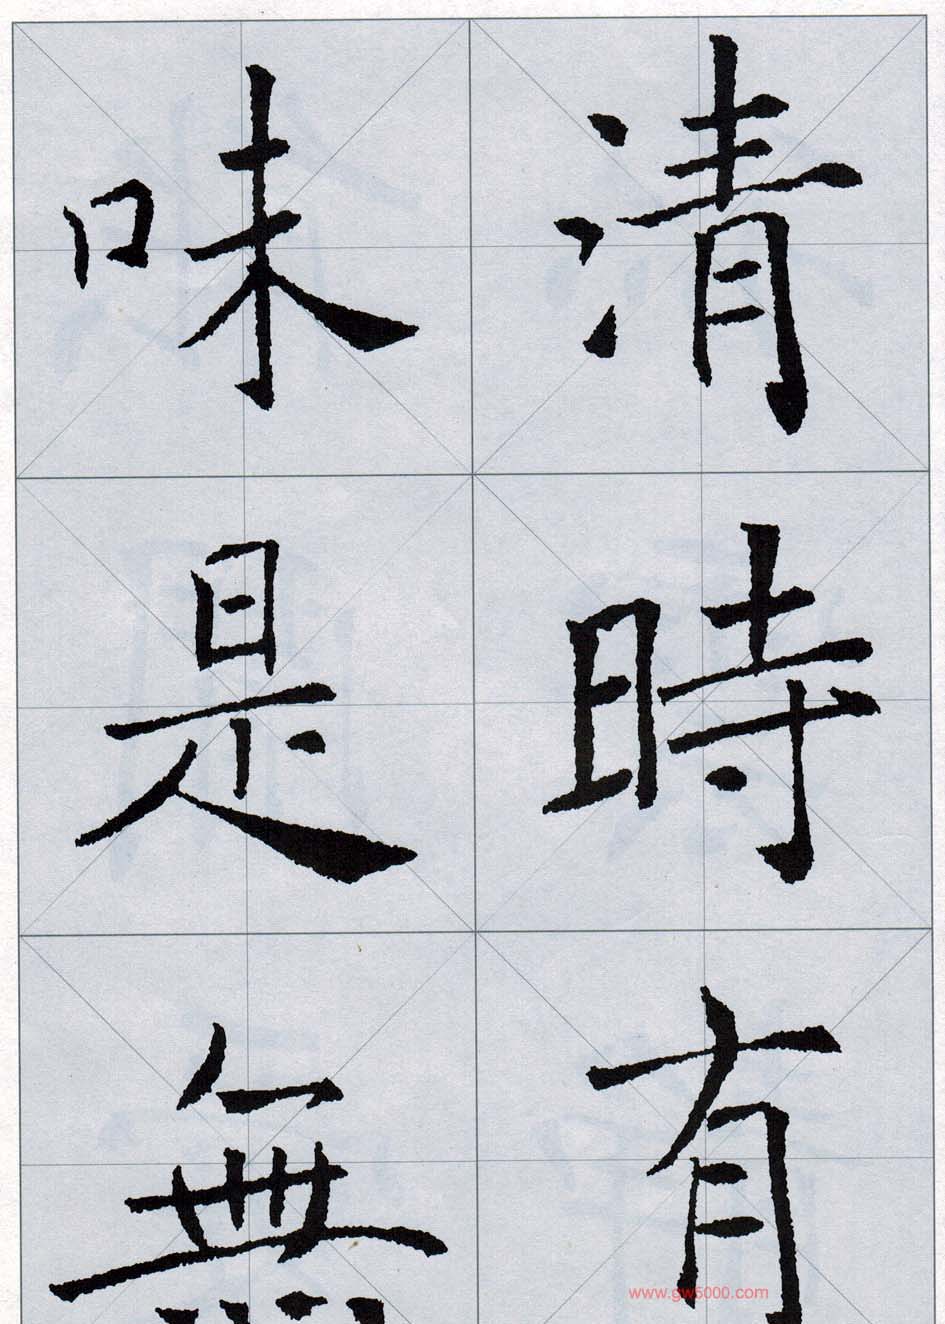 清時有
味是無
www.gw5000.com